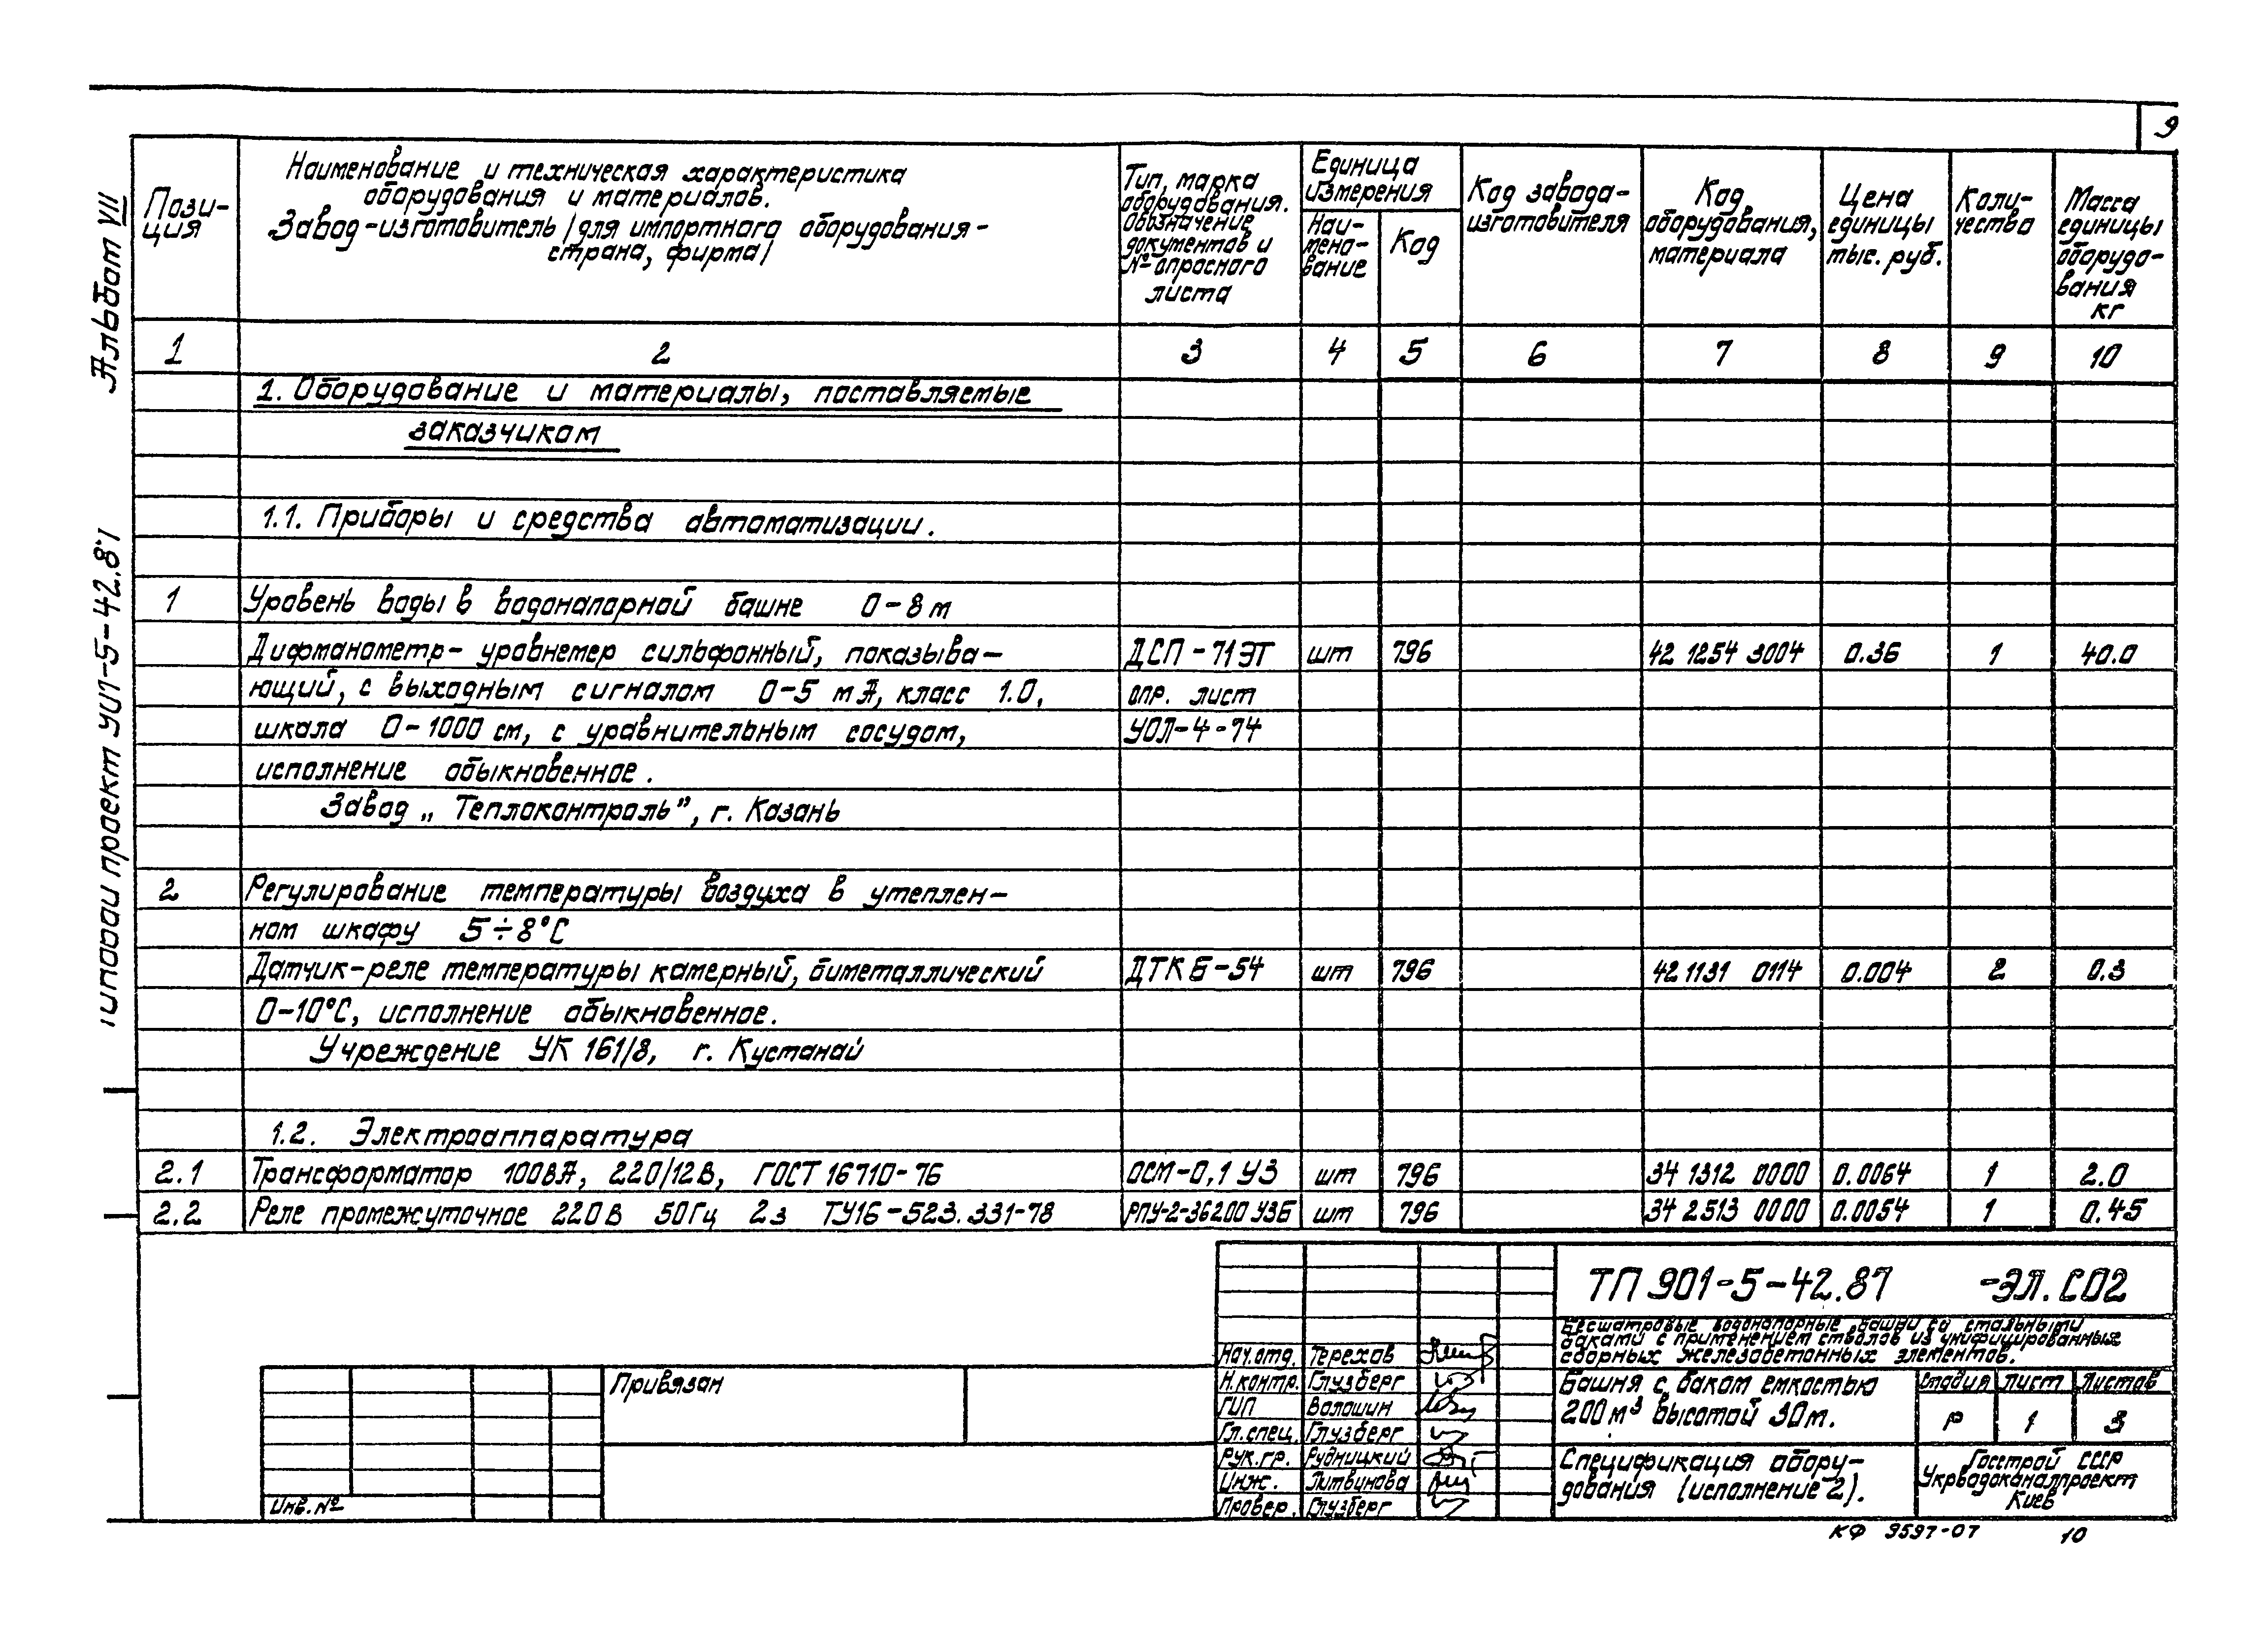 9
Альбом VII
проект 901-5-42.87
Пози-
ция
Наименование и техническая характеристика
оборудования и материалов.
Завод-изготовитель /для импортного оборудования-
страна, фирма/
Тип, марка
оборудования.
Обозначение
документов и
№ опросного
листа
Единица
измерения
Наи-
мено-
вание
Код
Код завода-
изготовителя
Код
оборудования,
материала
Цена
единицы
тыс. руб.
Коли-
чество
Масса
единицы
оборудо-
вания
кг
1 2 3 4 5 6 7 8 9 10
1. Оборудование и материалы, поставляемые
заказчиком
1.1. Приборы и средства автоматизации.
1 Уровень воды в водонапорной башне 0-8 м
Дифманометр-уровнемер сильфонный, показыва- ДСП-71ЭТ шт 796 42 1254 3004 0.36 1 40.0
ющий, с выходным сигналом 0-5 мА, класс 1.0, опр. лист
шкала 0-1000 см, с уравнительным сосудом, УОЛ-4-74
исполнение обыкновенное.
Завод „Теплоконтроль”, г. Казань
2 Регулирование температуры воздуха в утеплен-
ном шкафу 5÷8°С
Датчик-реле температуры камерный, биметаллический ДТКБ-54 шт 796 42 1131 0114 0.004 2 0.3
0-10°С, исполнение обыкновенное.
Учреждение УК 161/8, г. Кустанай
1.2. Электроаппаратура
2.1 Трансформатор 100ВА, 220/12В, ГОСТ 16710-76 ОСМ-0,1 У3 шт 796 34 1312 0000 0.0064 1 2.0
2.2 Реле промежуточное 220В 50Гц 2з ТУ16-523.331-78 РПУ-2-36200 У3Б шт 796 34 2513 0000 0.0054 1 0.45
ТП 901-5-42.87 -ЭЛ.СО2
Бесшатровые водонапорные башни со стальными
баками с применением стволов из унифицированных
сборных железобетонных элементов.
Нач.отд. Терехов
Н.контр. Глузберг
ГИП Волошин
Гл.спец. Глузберг
Рук.гр. Рудницкий
Инж. Литвинова
Провер. Глузберг
Башня с баком емкостью
200 м³ высотой 30м.
Стадия Лист Листов
Р 1 3
Спецификация обору-
дования (исполнение 2).
Госстрой СССР
Укрводоканалпроект
Киев
Привязан
Инв. №
КФ 9597-07 10